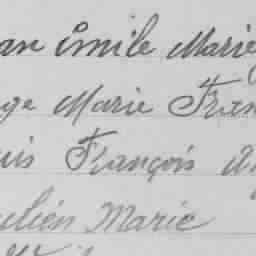 an Émile Marie
ge Marie Fran
uis François
ulien Marie